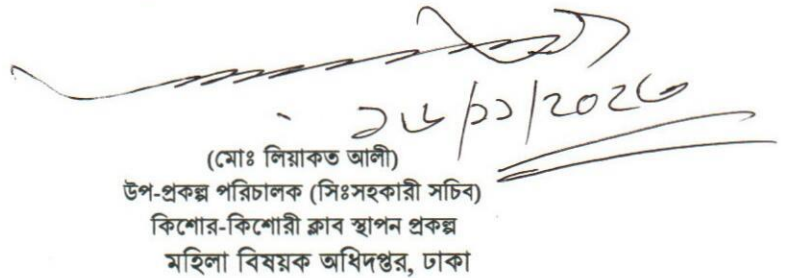 ১৬/১১/২০২৩
(মোঃ লিয়াকত আলী)
উপ-প্রকল্প পরিচালক (সিঃসহকারী সচিব)
কিশোর-কিশোরী ক্লাব স্থাপন প্রকল্প
মহিলা বিষয়ক অধিদপ্তর, ঢাকা